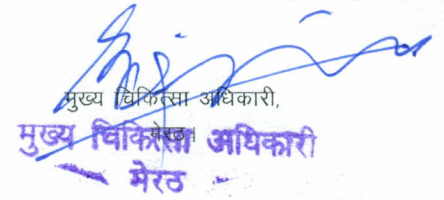 मुख्य चिकित्सा अधिकारी,
मेरठ।
मुख्य चिकित्सा अधिकारी
मेरठ